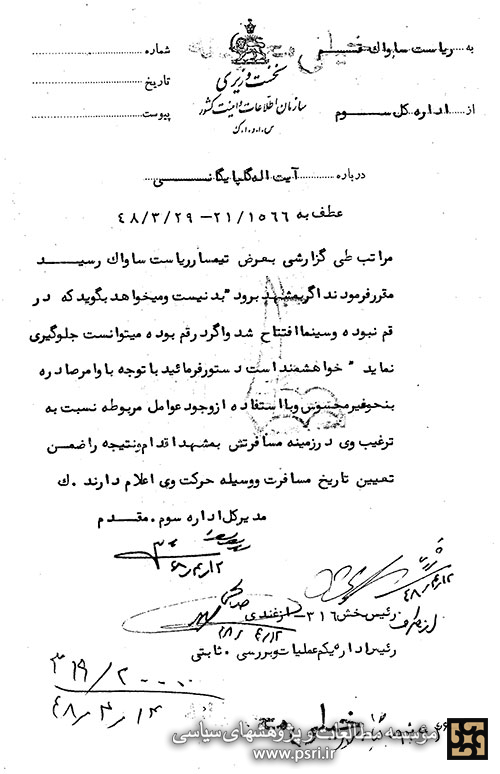 خیلی محرمانه
به ریاست ساواك قم
شماره
نخست وزیری
تاریخ
سازمان اطلاعات و امنیت کشور
از اداره کل سوم
پیوست
س.ا.و.ا.ك
درباره آیت اله گلپایگانی
عطف به ۲۱/۱۵۶۶ - ۴۸/۳/۲۹
مراتب طی گزارشی بعرض تیمسار ریاست ساواك رسید
مقرر فرمودند اگر بمشهد برود " بد نیست و میخواهد بگوید که در
قم نبوده و سینما افتتاح شد و اگر در قم بوده میتوانست جلوگیری
نماید " خواهشمند است دستور فرمائید با توجه باوامر صادره
بنحو غیر محسوس و با استفاده از وجود عوامل مربوطه نسبت به
ترغیب وی در زمینه مسافرتش بمشهد اقدام و نتیجه را ضمن
تعیین تاریخ مسافرت و وسیله حرکت وی اعلام دارند . ك
مدیر کل اداره سوم . مقدم
رئیس بخش ۳۱۶ - ازغندی
از طرف
۴۸/۴/۱۲
رئیس اداره یکم عملیات و بررسی . ثابتی
۴۸/۴/۱۲
۳۱۹/۲۰۰۰۰
۴۸/۴/۱۴
خیلی محرمانه
موسسه مطالعات و پژوهشهای سیاسی
www.psri.ir